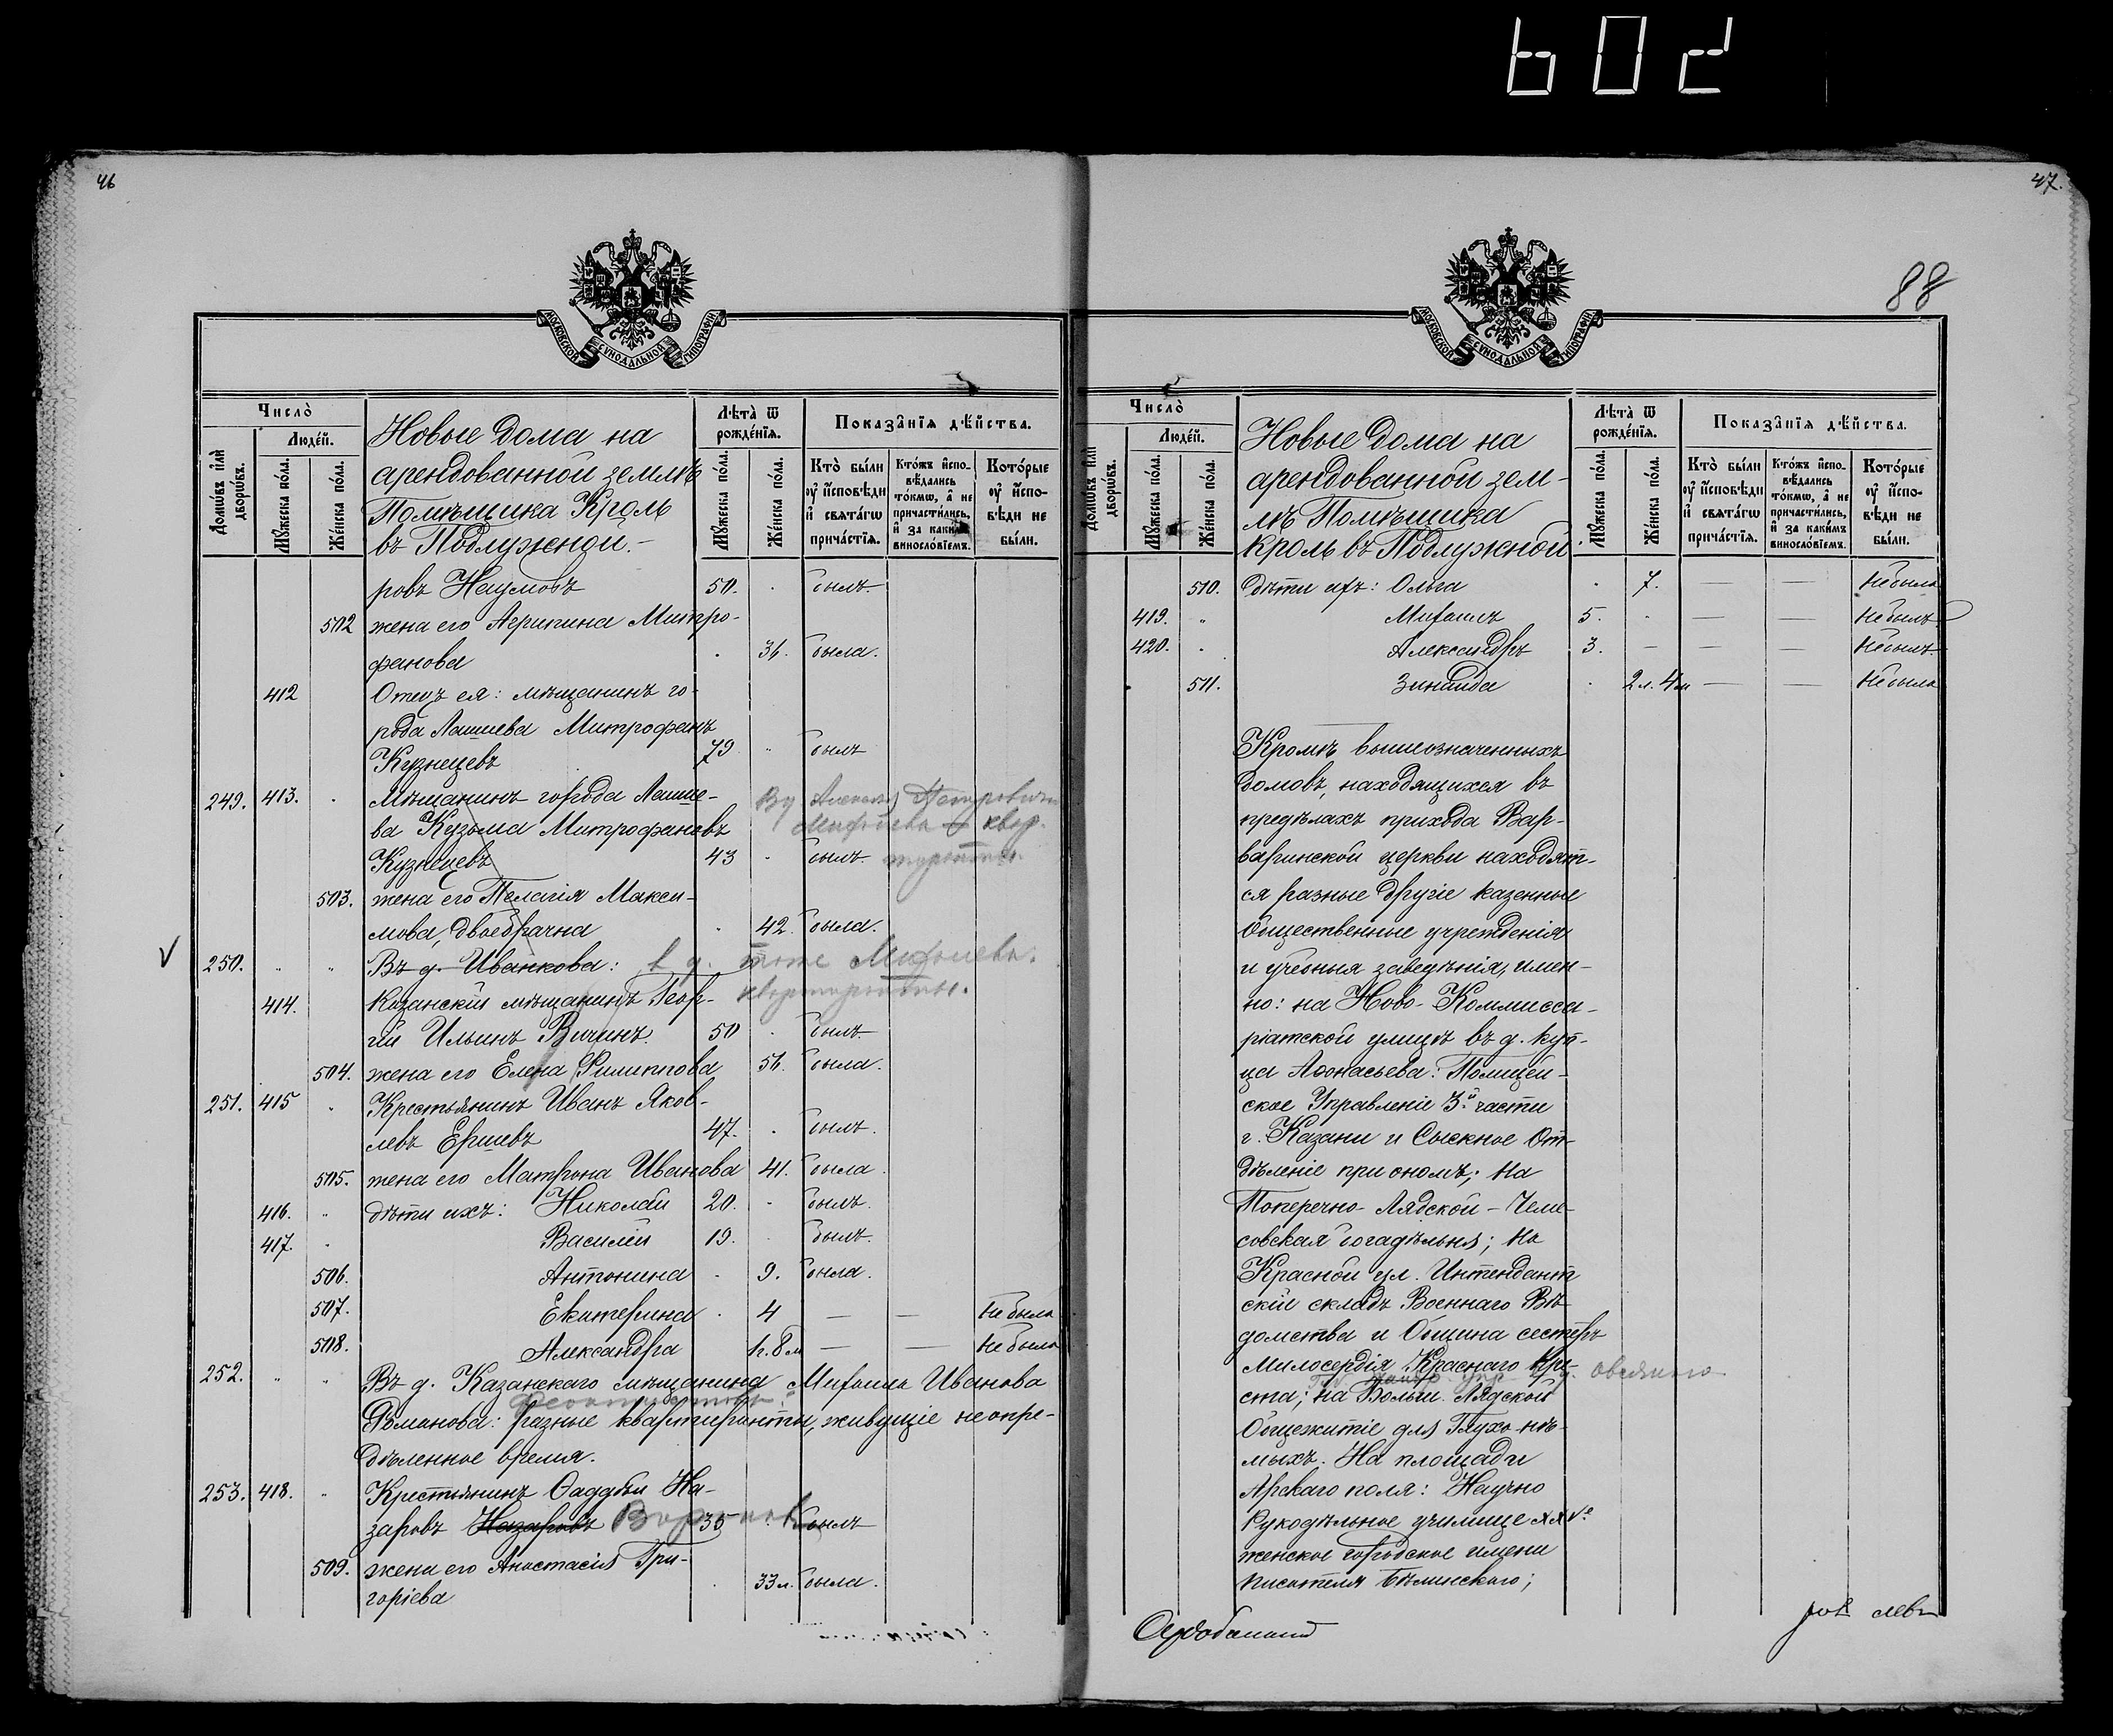 602
46
МОСКОВСКОЙ СѴНОДАЛЬНОЙ ТИПОГРАФІИ
Число̀
Людéй.
Домѡвъ и҆лѝ дворѡвъ.
Мꙋжеска по́ла.
Же́нска по́ла.
Новые дома на
арендованной землѣ
Помѣщика Кроль
въ Подлужной.-
Лѣта̀ ѿ рожде́нїя.
Мꙋжеска по́ла.
Же́нска по́ла.
Показа̂нїя дѣ́йства.
Кто̀ бы́ли ᲂу҆ и҆сповѣди и҆ свята́гѡ прича́стїя.
Кто́жъ и҆спо-вѣдались то́кмѡ, а҆ не причасти́лись, и҆ за каки́мъ винослове́емъ.
Кото́рые ᲂу҆ и҆спо-вѣди не бы́ли.
ровъ Наумовъ 50. былъ.
502 жена его Агрипина Митро-
фанова 36. была.
412 Отецъ ея: мѣщанинъ го-
рода Лаишева Митрофанъ
Кузнецевъ 79 былъ
249. 413. Мѣщанинъ города Лаише-
ва Кузьма Митрофановъ
Кузнецевъ 43 былъ
503. жена его Пелагія Макси-
мова, двоебрачна 42. была.
250. Въ д. Иванкова: в д. тоже
414. Казанскій мѣщанинъ Геор-
гій Ильинъ Вичинъ. 50 былъ
504. жена его Елена Филиппова 56. была.
251. 415 Крестьянинъ Иванъ Яков-
левъ Ершевъ 47. былъ.
505. жена его Матрона Иванова 41. была.
416. дѣти ихъ: Николай 20. былъ.
417. Василій 19. былъ.
506. Антонина 9. была.
507. Екатерина 4 — — Не была
508. Александра 1г. 8м — — Не была
252. Въ д. Казанскаго мѣщанина Михаила Иванова
Романова: разные квартиранты, живущіе неопре-
дѣленное время.
253. 418. Крестьянинъ Ѳаддей На-
заровъ Назаровъ 35 былъ
509. жена его Анастасія Гри-
горіева 33л. была.
47.
88
МОСКОВСКОЙ СѴНОДАЛЬНОЙ ТИПОГРАФІИ
Число̀
Людéй.
Домѡвъ и҆лѝ дворѡвъ.
Мꙋжеска по́ла.
Же́нска по́ла.
Новые дома на
арендованной зем-
лѣ Помѣщика
Кроль въ Подлужной
Лѣта̀ ѿ рожде́нїя.
Мꙋжеска по́ла.
Же́нска по́ла.
Показа̂нїя дѣ́йства.
Кто̀ бы́ли ᲂу҆ и҆сповѣди и҆ свята́гѡ прича́стїя.
Кто́жъ и҆спо-вѣдались то́кмѡ, а҆ не причасти́лись, и҆ за каки́мъ винослове́емъ.
Кото́рые ᲂу҆ и҆спо-вѣди не бы́ли.
510. Дѣти ихъ: Ольга 7. — — Не была
419. Михаилъ 5. — — Не былъ
420. Александръ 3. — — — Не былъ
511. Зинаида 2л. 4м — — Не была
Кромѣ вышеозначенныхъ
домовъ, находящихся въ
предѣлахъ прихода Вар-
варинской церкви находят-
ся разные другіе казенные
общественные учрежденія
и учебныя заведенія, имен-
но: на Ново-Коммисса-
ріатской улицѣ въ д. куп-
ца Аѳонасьева: Полицей-
ское Управленіе 3й части
г. Казани и Сыскное От-
дѣленіе при ономъ; на
Поперечно-Лядской - Чеме-
совская богадѣльня; на
Красной ул. Интендант
скій складъ Военнаго Вѣ-
домства и Община сестеръ
Милосердія Краснаго Кре-
ста; на Больш. Лядской
Общежитіе для Глухо-нѣ-
мыхъ. На площади
Арскаго поля: Научно
Рукодѣльное училище
женское городское имени
писателя Бѣлинскаго;